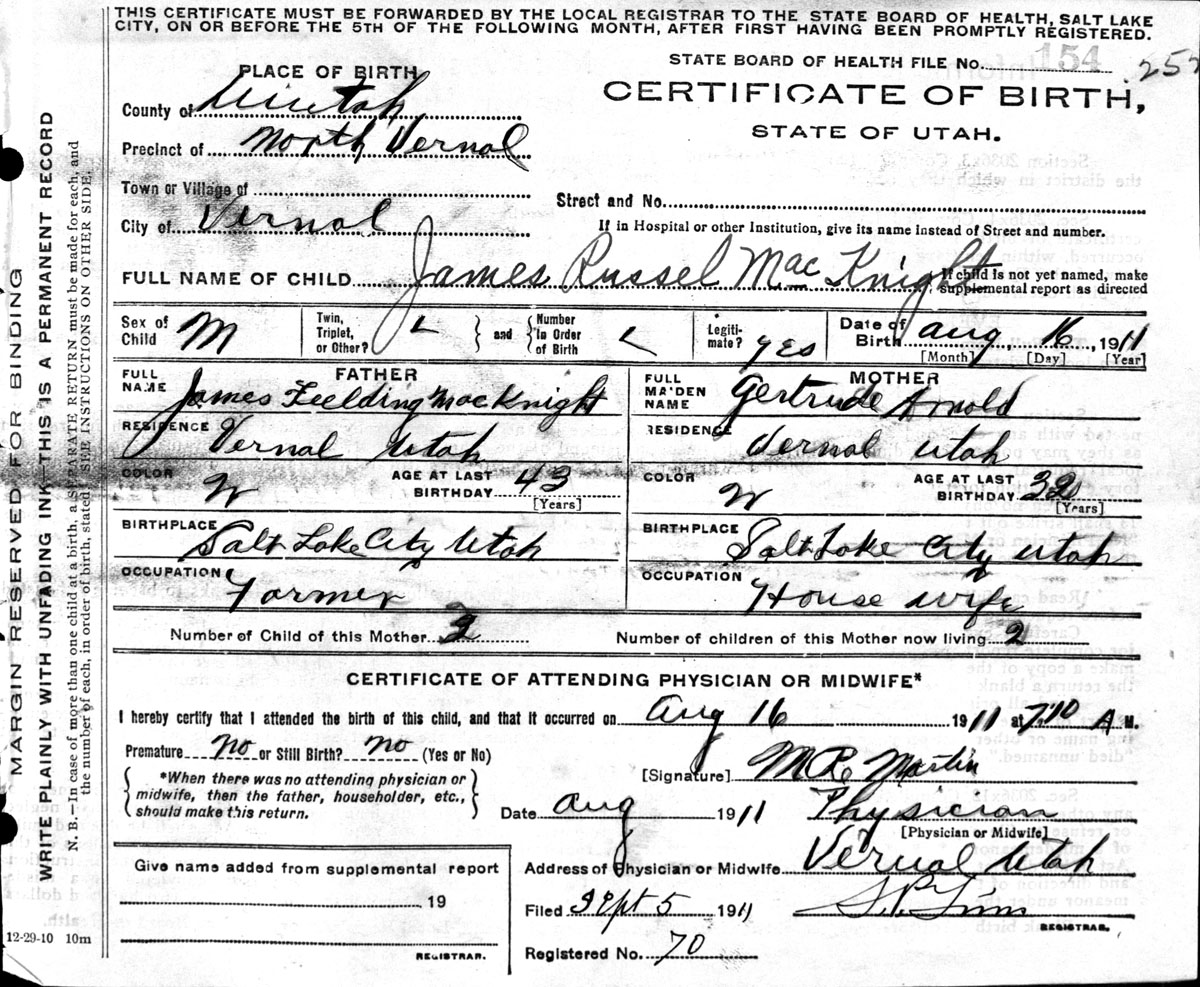 THIS CERTIFICATE MUST BE FORWARDED BY THE LOCAL REGISTRAR TO THE STATE BOARD OF HEALTH, SALT LAKE
CITY, ON OR BEFORE THE 5TH OF THE FOLLOWING MONTH, AFTER FIRST HAVING BEEN PROMPTLY REGISTERED.
STATE BOARD OF HEALTH FILE No. 154 252
PLACE OF BIRTH
CERTIFICATE OF BIRTH,
STATE OF UTAH.
County of Uintah
Precinct of North Vernal
Town or Village of
Street and No.
City of Vernal
If in Hospital or other Institution, give its name instead of Street and number.
FULL NAME OF CHILD James Russel Mac Knight
If child is not yet named, make
supplemental report as directed
Sex of Child M
Twin, Triplet, or Other?
and
Number in Order of Birth
Legitimate? yes
Date of Birth Aug 16, 1911
[Month] [Day] [Year]
FATHER
FULL NAME James Fielding MacKnight
RESIDENCE Vernal Utah
COLOR W AGE AT LAST BIRTHDAY 43 [Years]
BIRTHPLACE Salt Lake City Utah
OCCUPATION Farmer
MOTHER
FULL MAIDEN NAME Gertrude Arnold
RESIDENCE Vernal Utah
COLOR W AGE AT LAST BIRTHDAY [Years]
BIRTHPLACE Salt Lake City Utah
OCCUPATION House wife
Number of Child of this Mother
Number of children of this Mother now living 2
CERTIFICATE OF ATTENDING PHYSICIAN OR MIDWIFE*
I hereby certify that I attended the birth of this child, and that it occurred on Aug 16 1911 at 7:10 A M.
Premature no or Still Birth? no (Yes or No)
*When there was no attending physician or
midwife, then the father, householder, etc.,
should make this return.
[Signature] Martin
Date Aug 1911 Physician
[Physician or Midwife]
Address of Physician or Midwife Vernal Utah
Filed Sept 5 1911
REGISTRAR.
Registered No. 70
Give name added from supplemental report
19
REGISTRAR.
12-29-10 10m
MARGIN RESERVED FOR BINDING
WRITE PLAINLY WITH UNFADING INK—THIS IS A PERMANENT RECORD
N. B.—In case of more than one child at a birth, a SEPARATE RETURN must be made for each, and
the number of each, in order of birth, stated. SEE INSTRUCTIONS ON OTHER SIDE.